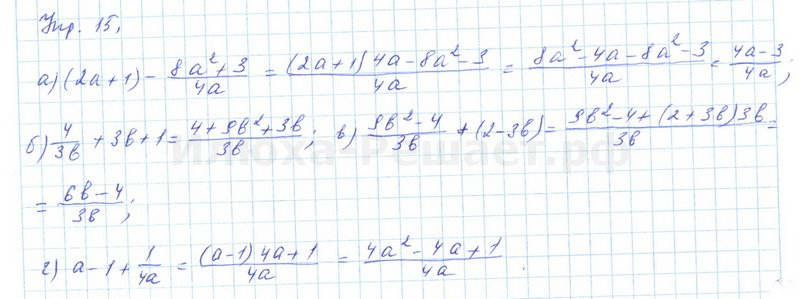 Упр. 15.
а) (2a+1) - \frac{8a^2+3}{4a} = \frac{(2a+1)4a-8a^2-3}{4a} = \frac{8a^2-4a-8a^2-3}{4a} = \frac{4a-3}{4a};
б) \frac{4}{3b} + 3b + 1 = \frac{4+9b^2+3b}{3b}; в) \frac{9b^2-4}{3b} + (2-3b) = \frac{9b^2-4+(2+3b)3b}{3b} =
илюха-Решает.рф
= \frac{6b-4}{3b};
г) a-1+\frac{1}{4a} = \frac{(a-1)4a+1}{4a} = \frac{4a^2-4a+1}{4a}.